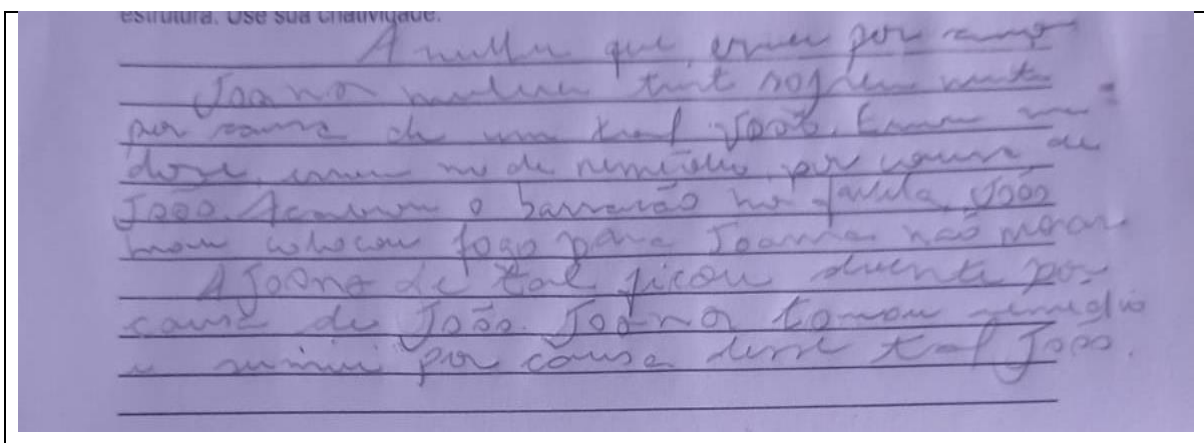 estrutura. Use sua criatividade.
A que errou por amor
Joana mulher
por causa de um tal João. Errou na
dose, errou no de remédio por causa de
João. Acabou o barracão na favela, João
mau colocou fogo para Joanna não morar
A Joana de tal ficou doente por
causa de João. Joana tomou remédio
e sumiu por causa desse tal João.